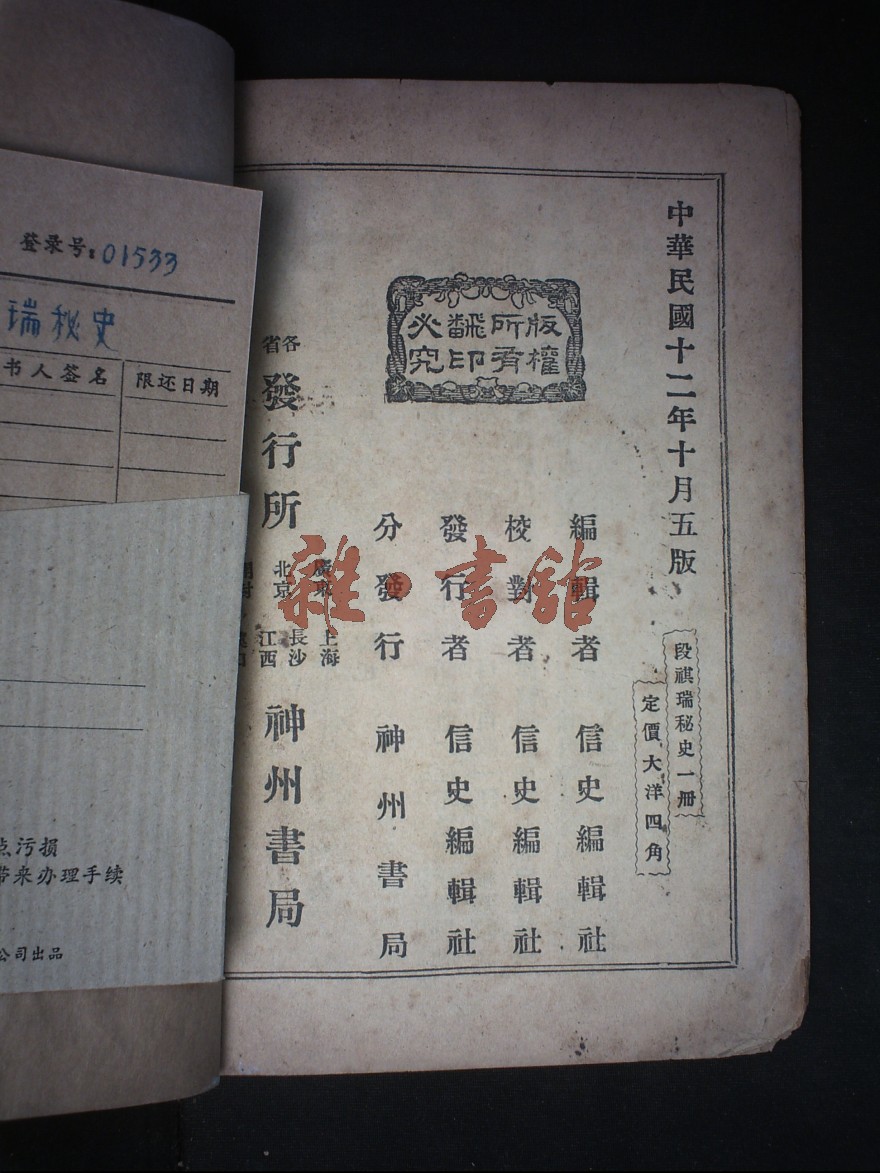 中華民國十二年十月五版
段祺瑞秘史一冊
定價大洋四角
版權所有
翻印必究
編輯者 信史編輯社
校對者 信史編輯社
發行者 信史編輯社
分發行 神州書局
各省發行所
上海
北京 長沙
江西
神州書局
雜·書舘
登录号:01533
瑞秘史
书人签名 限还日期
点污损
带来办理手续
公司出品